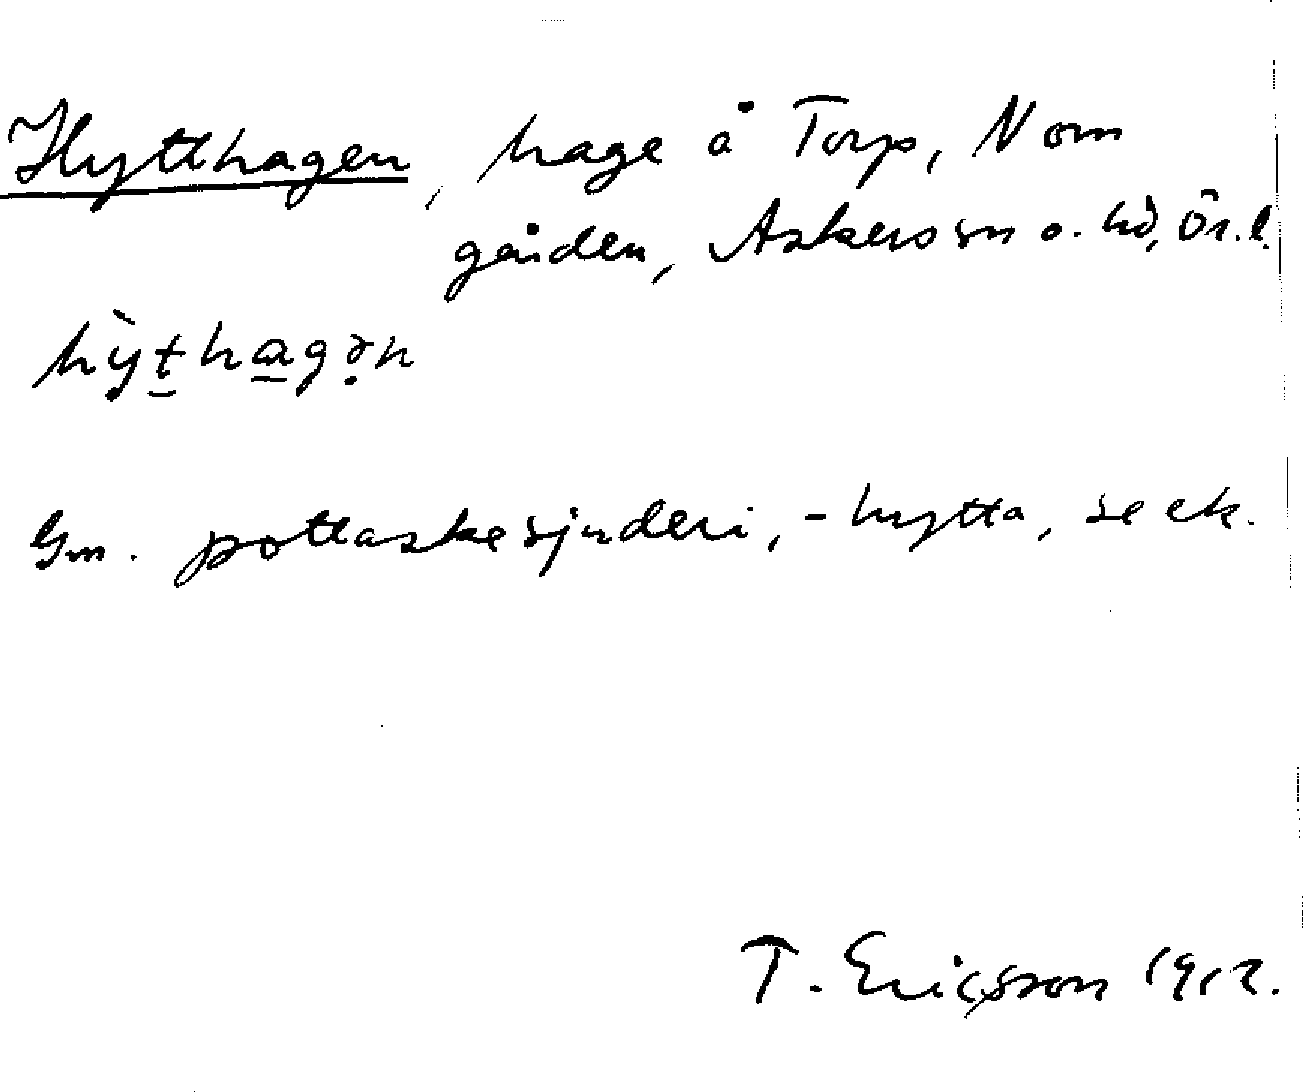 Hytthagen, hage å Torp, Nom
gården, Askers sn o. hd, Ör. l.
hỳthagən
Gm. pottaskesjuderi, - hytta, se ek.
T. Ericsson 1912.